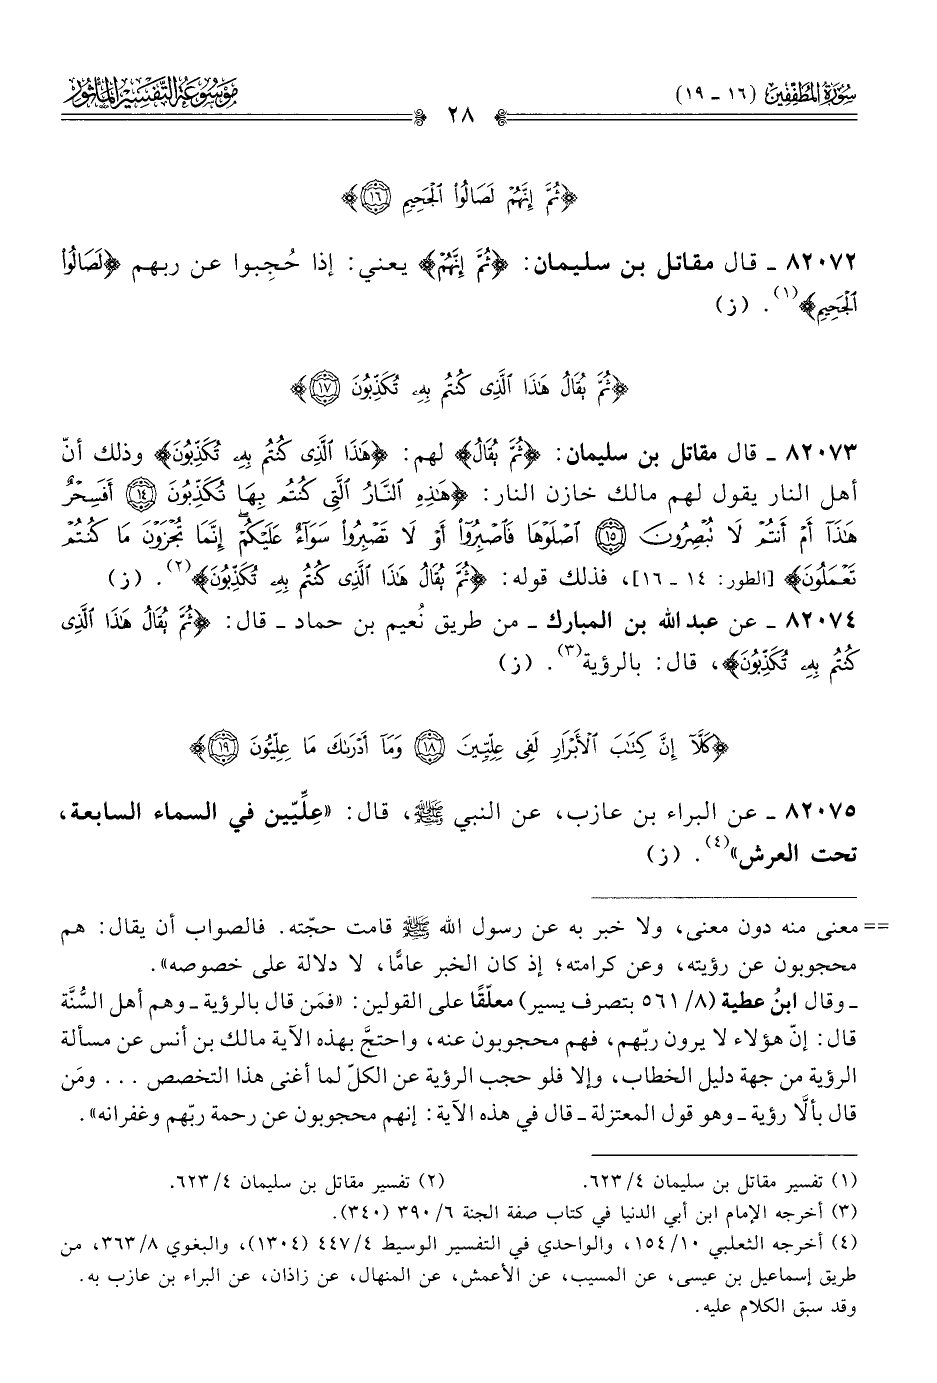 سُورَةُ المُطَفِّفِين (١٦ - ١٩)
٢٨
مَوْسُوعَةُ التَّفْسِيرِ المَأْثُور
﴿ثُمَّ إِنَّهُمْ لَصَالُوا۟ ٱلْجَحِيمِ ١٦﴾
٨٢٠٧٢ ـ قال مقاتل بن سليمان: ﴿ثُمَّ إِنَّهُمْ﴾ يعني: إذا حُجِبوا عن ربهم ﴿لَصَالُوا۟
ٱلْجَحِيمِ﴾(١). (ز)
﴿ثُمَّ يُقَالُ هَٰذَا ٱلَّذِى كُنتُم بِهِۦ تُكَذِّبُونَ ١٧﴾
٨٢٠٧٣ ـ قال مقاتل بن سليمان: ﴿ثُمَّ يُقَالُ﴾ لهم: ﴿هَٰذَا ٱلَّذِى كُنتُم بِهِۦ تُكَذِّبُونَ﴾ وذلك أنّ
أهل النار يقول لهم مالك خازن النار: ﴿هَٰذِهِ ٱلنَّارُ ٱلَّتِى كُنتُم بِهَا تُكَذِّبُونَ ١٤ أَفَسِحْرٌ
هَٰذَآ أَمْ أَنتُمْ لَا تُبْصِرُونَ ١٥ ٱصْلَوْهَا فَٱصْبِرُوٓا۟ أَوْ لَا تَصْبِرُوا۟ سَوَآءٌ عَلَيْكُمْ ۖ إِنَّمَا تُجْزَوْنَ مَا كُنتُمْ
تَعْمَلُونَ﴾ [الطور: ١٤ - ١٦]، فذلك قوله: ﴿ثُمَّ يُقَالُ هَٰذَا ٱلَّذِى كُنتُم بِهِۦ تُكَذِّبُونَ﴾(٢). (ز)
٨٢٠٧٤ ـ عن عبد الله بن المبارك ـ من طريق نُعيم بن حماد ـ قال: ﴿ثُمَّ يُقَالُ هَٰذَا ٱلَّذِى
كُنتُم بِهِۦ تُكَذِّبُونَ﴾، قال: بالرؤية(٣). (ز)
﴿كَلَّآ إِنَّ كِتَٰبَ ٱلْأَبْرَارِ لَفِى عِلِّيِّينَ ١٨ وَمَآ أَدْرَىٰكَ مَا عِلِّيُّونَ ١٩﴾
٨٢٠٧٥ ـ عن البراء بن عازب، عن النبي ﷺ، قال: «عِلِّيّين في السماء السابعة،
تحت العرش»(٤). (ز)
== معنى منه دون معنى، ولا خبر به عن رسول الله ﷺ قامت حجّته. فالصواب أن يقال: هم
محجوبون عن رؤيته، وعن كرامته؛ إذ كان الخبر عامًّا، لا دلالة على خصوصه».
ـ وقال ابنُ عطية (٨/ ٥٦١ بتصرف يسير) معلّقًا على القولين: «فمَن قال بالرؤية ـ وهم أهل السُّنَّة
قال: إنّ هؤلاء لا يرون ربّهم، فهم محجوبون عنه، واحتجَّ بهذه الآية مالك بن أنس عن مسألة
الرؤية من جهة دليل الخطاب، وإلا فلو حجب الرؤية عن الكلّ لما أغنى هذا التخصص ... ومَن
قال بألَّا رؤية ـ وهو قول المعتزلة ـ قال في هذه الآية: إنهم محجوبون عن رحمة ربّهم وغفرانه».
(١) تفسير مقاتل بن سليمان ٤/ ٦٢٣. (٢) تفسير مقاتل بن سليمان ٤/ ٦٢٣.
(٣) أخرجه الإمام ابن أبي الدنيا في كتاب صفة الجنة ٦/ ٣٩٠ (٣٤٠).
(٤) أخرجه الثعلبي ١٠/ ١٥٤، والواحدي في التفسير الوسيط ٤/ ٤٤٧ (١٣٠٤)، والبغوي ٨/ ٣٦٣، من
طريق إسماعيل بن عيسى، عن المسيب، عن الأعمش، عن المنهال، عن زاذان، عن البراء بن عازب به.
وقد سبق الكلام عليه.